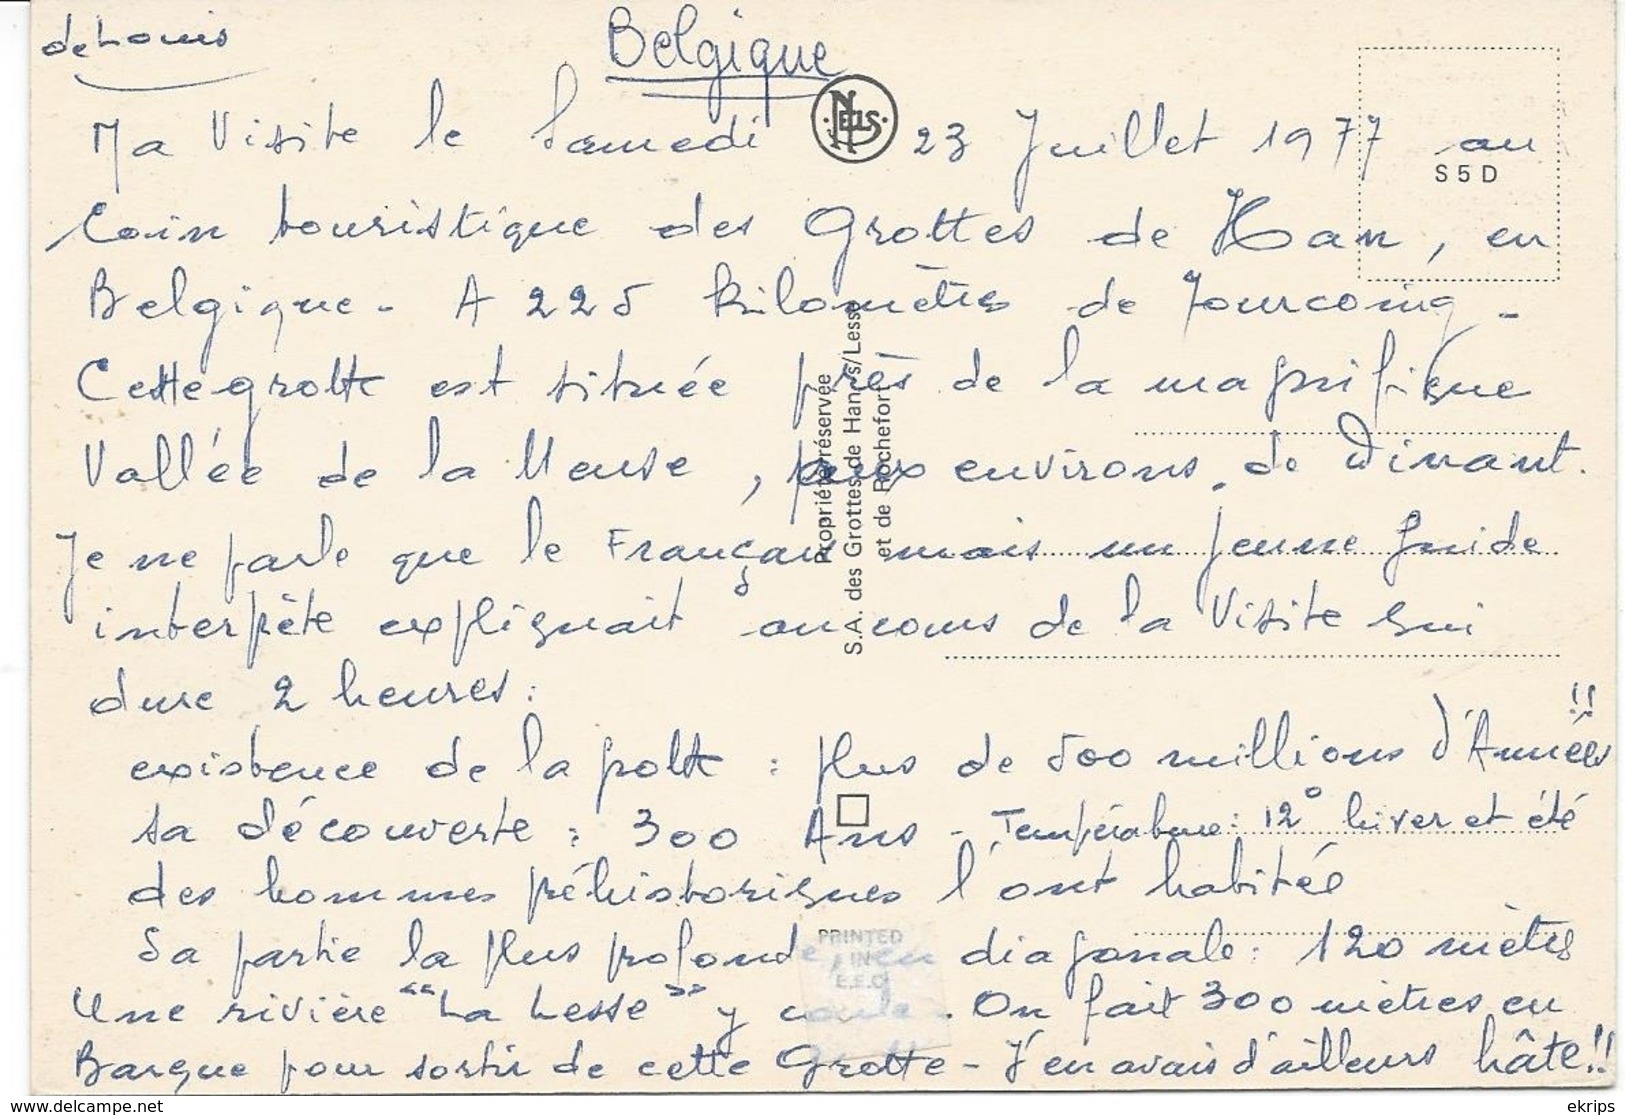 de Louis
Belgique
NELS
Ma Visite le Samedi 23 Juillet 1977 au
S 5 D
Coin touristique des Grottes de Han, en
Belgique - A 225 kilomètres de Tourcoing -
Cette grotte est située près de la magnifique
Vallée de la Meuse, aux environs de Dinant.
Je ne parle que le Français mais un jeune guide
interprète expliquait au cours de la Visite qui
dure 2 heures :
existence de la grotte : plus de 500 millions d'Années !!
sa découverte : 300 Ans - Température : 12° hiver et été
des hommes préhistoriques l'ont habitée
Sa partie la plus profonde, en diagonale : 120 mètres
Une rivière "La Lesse" y coule. On fait 300 mètres en
Barque pour sortir de cette Grotte - J'en avais d'ailleurs hâte !!
Propriété réservée
S.A. des Grottes de Han s/Lesse
et de Rochefort
PRINTED
IN
E.E.C.
delcampe.net
ekrips